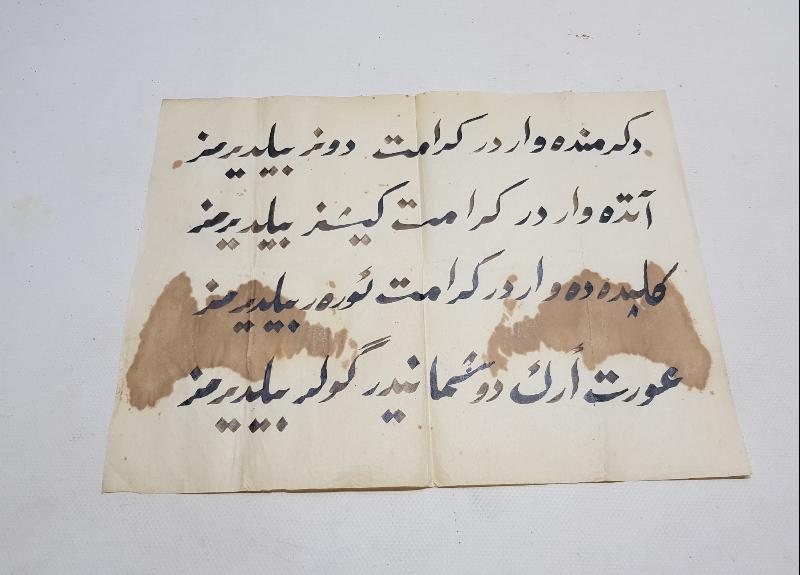 دكرمنده واردر كرامت دونر بيلديرمز
آتده واردر كرامت كيشنر بيلديرمز
كلبده ده واردر كرامت ئوره ر بيلديرمز
عورت أرك دوشمانيدر گولر بيلديرمز